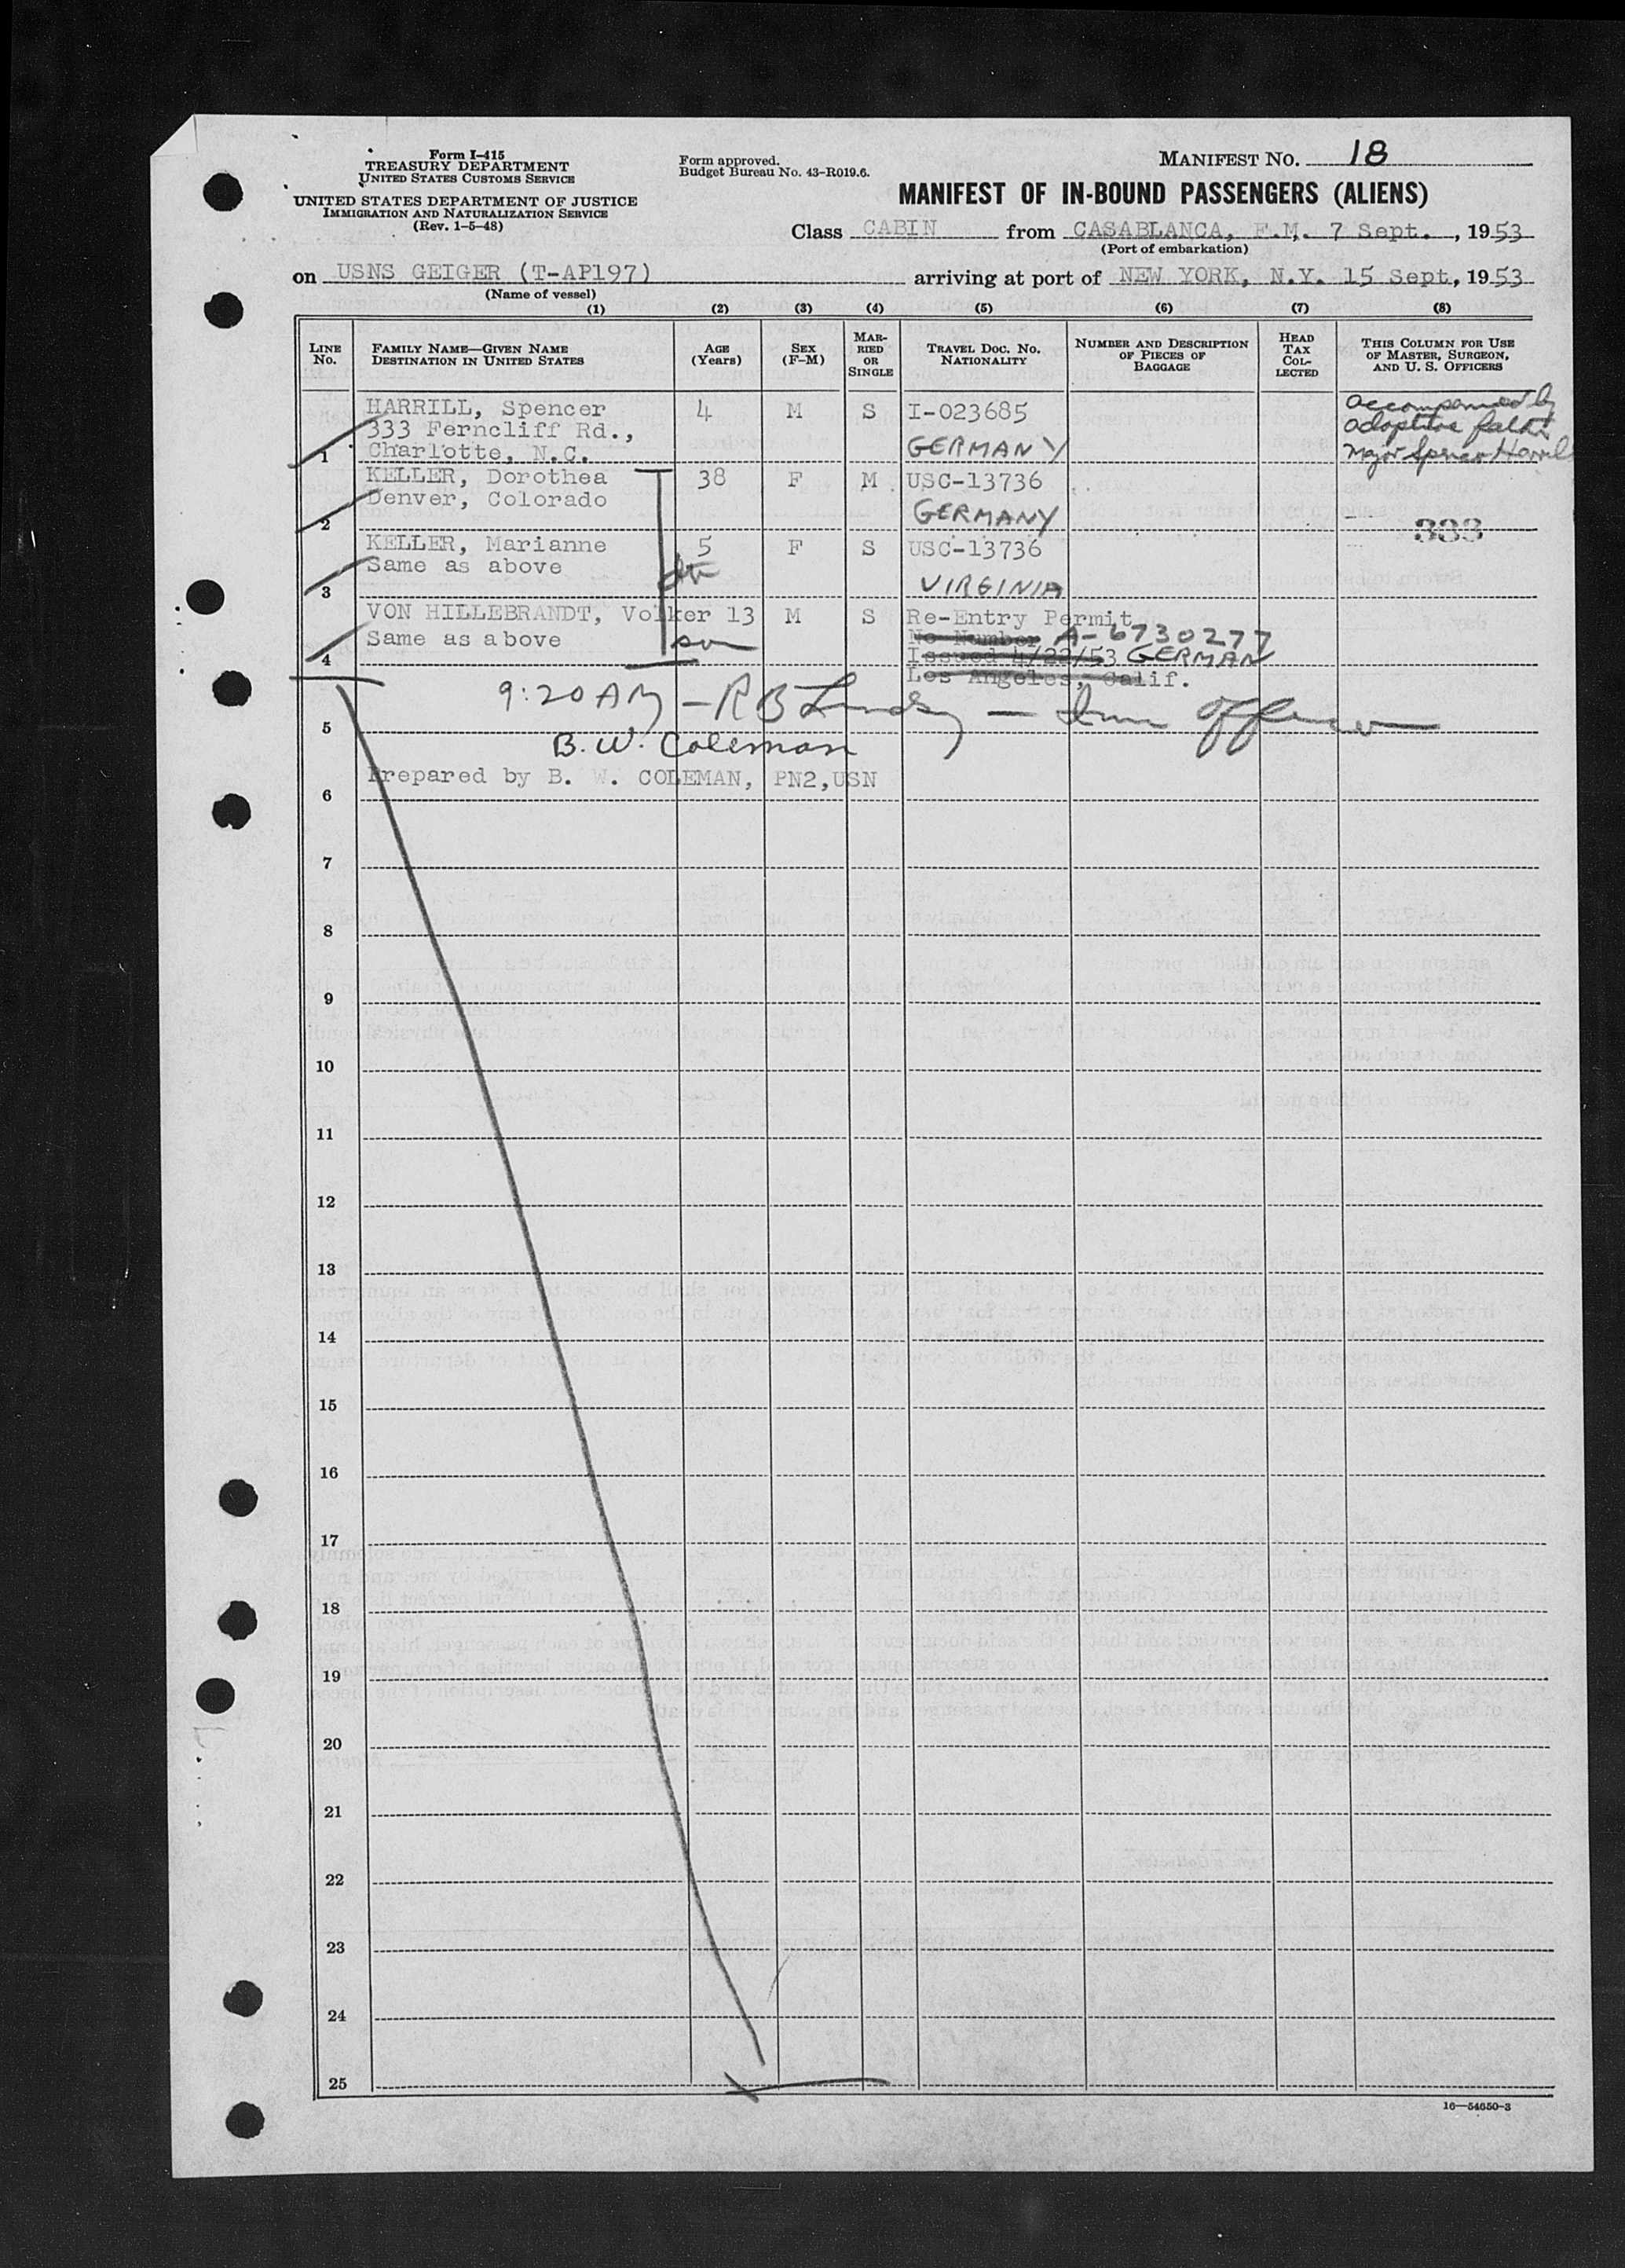 Form I-415
TREASURY DEPARTMENT
UNITED STATES CUSTOMS SERVICE
UNITED STATES DEPARTMENT OF JUSTICE
IMMIGRATION AND NATURALIZATION SERVICE
(Rev. 1-5-48)
Form approved.
Budget Bureau No. 43-R019.6.
MANIFEST NO. 18
MANIFEST OF IN-BOUND PASSENGERS (ALIENS)
Class CABIN from CASABLANCA, F.M. 7 Sept. , 1953
(Port of embarkation)
on USNS GEIGER (T-AP197) arriving at port of NEW YORK, N.Y. 15 Sept, 1953
(Name of vessel)
(1) (2) (3) (4) (5) (6) (7) (8)
LINE No. FAMILY NAME—GIVEN NAME DESTINATION IN UNITED STATES AGE (Years) SEX (F-M) MARRIED OR SINGLE TRAVEL DOC. NO. NATIONALITY NUMBER AND DESCRIPTION OF PIECES OF BAGGAGE HEAD TAX COLLECTED THIS COLUMN FOR USE OF MASTER, SURGEON, AND U. S. OFFICERS
HARRILL, Spencer 4 M S I-023685 accompanied by
333 Ferncliff Rd., adoptive father
1 Charlotte, N.C. GERMANY Major Spencer Harrill
KELLER, Dorothea 38 F M USC-13736
Denver, Colorado
2 GERMANY 333
KELLER, Marianne 5 F S USC-13736
Same as above dtr
3 VIRGINIA
VON HILLEBRANDT, Volker 13 M S Re-Entry Permit
Same as above son No Number A-6730277
4 Issued 4/22/53 GERMAN
Los Angeles, Calif.
9:20 AM — R B Lindsy — Imm Officer
5
B. W. Coleman
Prepared by B. W. COLEMAN, PN2,USN
6
7
8
9
10
11
12
13
14
15
16
17
18
19
20
21
22
23
24
25
16—54650-3